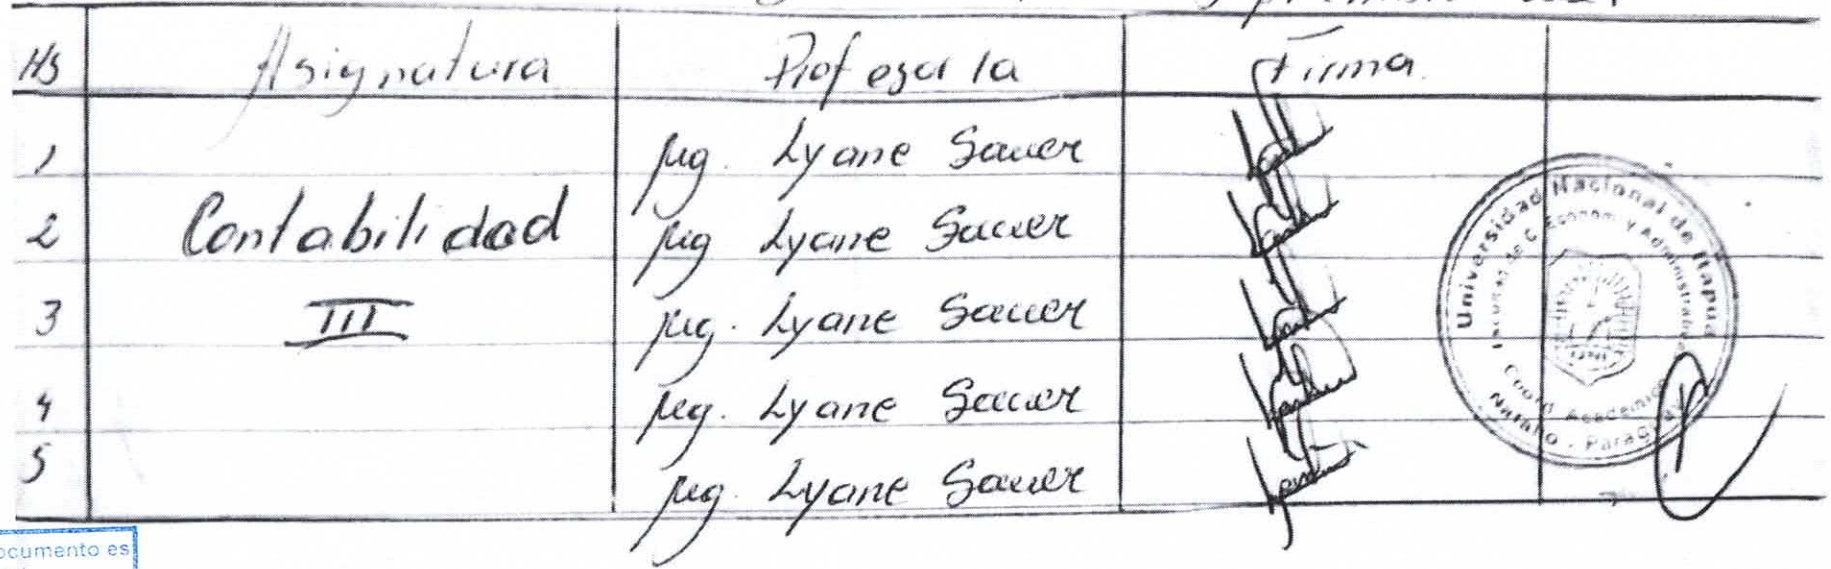 Hs Asignatura Profesor/a Firma
1 Mg. Lyane Sauer
2 Contabilidad Mg Lyane Sauer
3 III Mg. Lyane Sauer
4 Mg. Lyane Sauer
5 Mg. Lyane Sauer
Universidad Nacional de Itapua
Facultad de C. Econom y Administrativas
UNI
Coord. Academica
Natalio - Paraguay
ocumento es